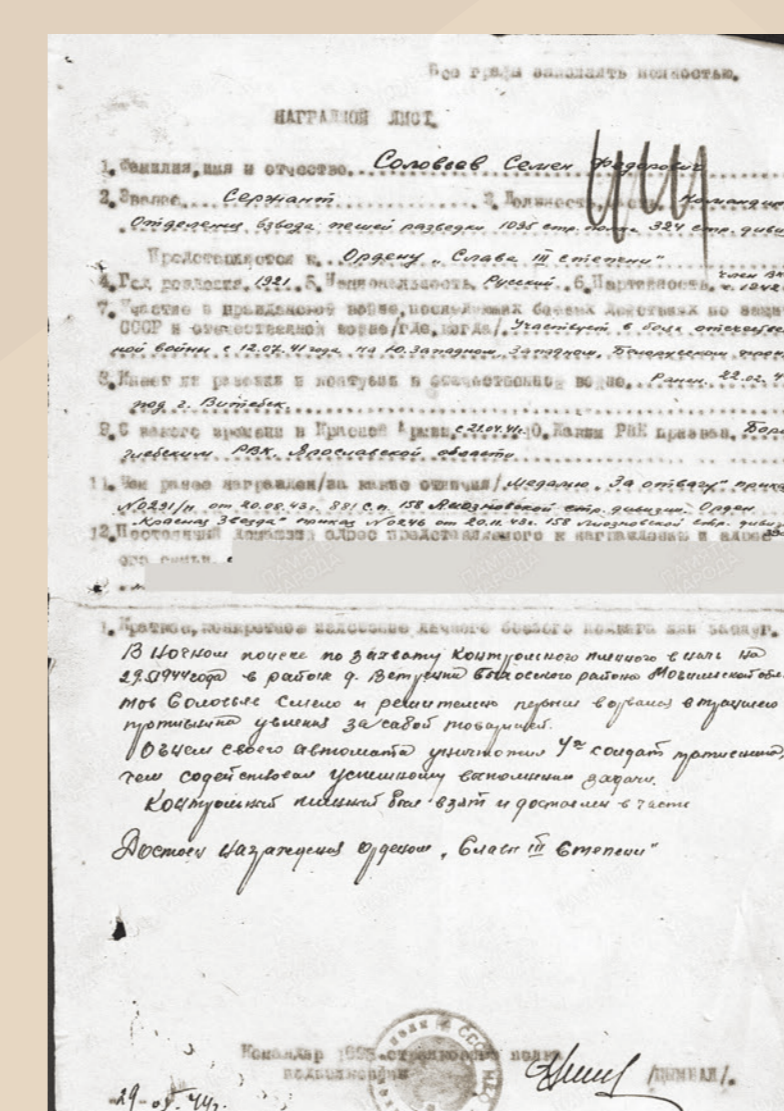 Все графы заполнять полностью.
НАГРАДНОЙ ЛИСТ.
1. Фамилия, имя и отчество. Соловьев Семен Федорович
2. Звание. Сержант 3. Должность, часть. Командир
Отделения взвода пешей разведки 1095 стр. полка 324 стр. диви
Представляется к. Ордену „Слава III степени"
4. Год рождения. 1921. 5. Национальность. Русский. 6. Партийность. член ВК
7. Участие в гражданской войне, последующих боевых действиях по защи
СССР и отечественной войне/где, когда/. Участвует в боях отечествен
ной войны с 12.07.41 года на Ю. Западном, Западном, Белорусском фрон
8. Имеет ли ранения и контузии в отечественной войне. Ранен. 22.02.4
под г. Витебск.
9. С какого времени в Красной Армии. 10. Каким РВК призван. Бори
глебским РВК. Ярославской области
11. Чем ранее награжден/за какие отличия/. Медалью „За отвагу" прика
№0291/н. от 20.08.43г. 881 с.п. 158 Лиозновской стр. дивизии. Орден
„Красная Звезда" приказ №0246 от 20.11.43г. 158 Лиозновской стр. диви
12. Постоянный домашний адрес представляемого к награждению и адрес
его семьи.
1. Краткое, конкретное изложение личного боевого подвига или заслуг.
В ночном поиске по захвату контрольного пленного в ночь на
1944 года в районе д. Быховского района Могилевской обл.
тов Соловьев смело и решительно первым ворвался в траншею
противника увлекая за собой товарищей.
Огнем своего автомата уничтожил солдат противника,
чем содействовал успешному выполнению задачи.
Контрольный пленный был взят и доставлен в части
Достоен награждения орденом „Слава III Степени"
Командир 1095 стрелкового полка
подполковник
29